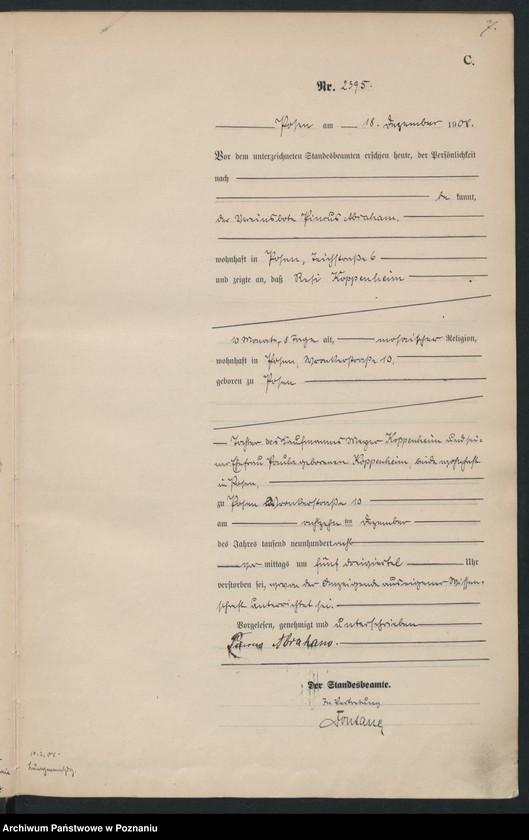 7.
C.
Nr. 2395.
Posen am 18. Dezember 1908.
Vor dem unterzeichneten Standesbeamten erschien heute, der Persönlichkeit
nach
be kannt,
der Vereinsbote Pincus Abraham,
wohnhaft in Posen, Teichstraße 6
und zeigte an, daß Resi Koppenheim
10 Monate, 8 Tage alt, mosaischer Religion,
wohnhaft in Posen, Wronkerstraße 10,
geboren zu Posen
Tochter des Kaufmannes Meyer Koppenheim und sei-
ner Ehefrau Paula geborenen Koppenheim, beide wohnhaft
in Posen,
zu Posen Wronkerstraße 10
am achtzehn ten Dezember
des Jahres tausend neunhundert acht
vor mittags um fünf dreiviertel Uhr
verstorben sei, wovon der Anzeigende aus eigener Wissen-
schaft unterrichtet sei.
Vorgelesen, genehmigt und unterschrieben
Pincus Abraham.
Der Standesbeamte.
In Vertretung
Fontane
Archiwum Państwowe w Poznaniu